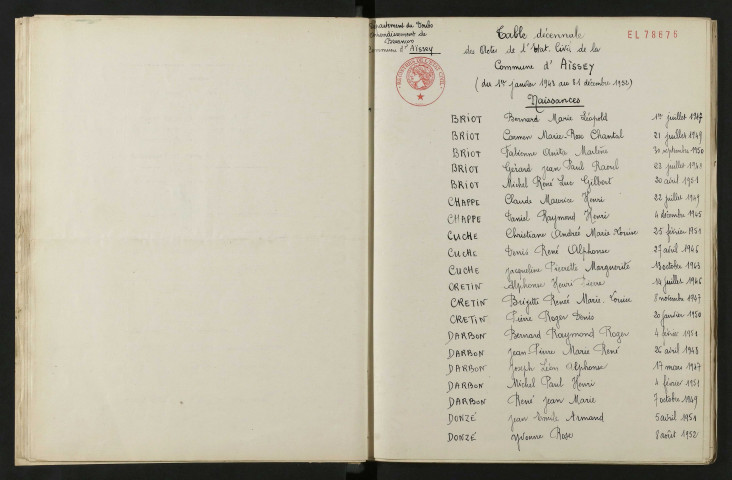 Département du Doubs
Arrondissement de
Besançon
Commune d'Aïssey
Table décennale
EL78676
des Actes de l'état Civil de la
Commune d'Aïssey
(du 1er janvier 1943 au 31 décembre 1952)
Naissances
BRIOT Bernard Marie Léopold 1er juillet 1947
BRIOT Carmen Marie-Rose Chantal 21 juillet 1949
BRIOT Fabienne Anita Marlène 30 septembre 1950
BRIOT Gérard Jean Paul Raoul 23 juillet
BRIOT Michel René Luc Gilbert 20 avril 1951
CHAPPE Claude Maurice Henri 22 juillet 1949
CHAPPE Daniel Raymond Henri 4 décembre 1945
CUCHE Christiane Andrée Marie-Louise 25 février 1951
CUCHE Denis René Alphonse 27 avril 1946
CUCHE Jacqueline Pierrette Marguerite 13 octobre 1943
CRETIN Alphonse Henri Pierre 14 juillet 1946
CRETIN Brigitte Renée Marie-Louise 8 novembre 1947
CRETIN Pierre Roger Denis 20 janvier 1950
DARBON Bernard Raymond Roger 4 février 1951
DARBON Jean-Pierre Marie René 26 avril 1948
DARBON Joseph Léon Alphonse 17 mars 1947
DARBON Michel Paul Henri 4 février 1951
DARBON René Jean Marie 7 octobre 1949
DONZÉ Jean Emile Armand 5 avril 1951
DONZÉ Yvonne Rose 8 août 1952